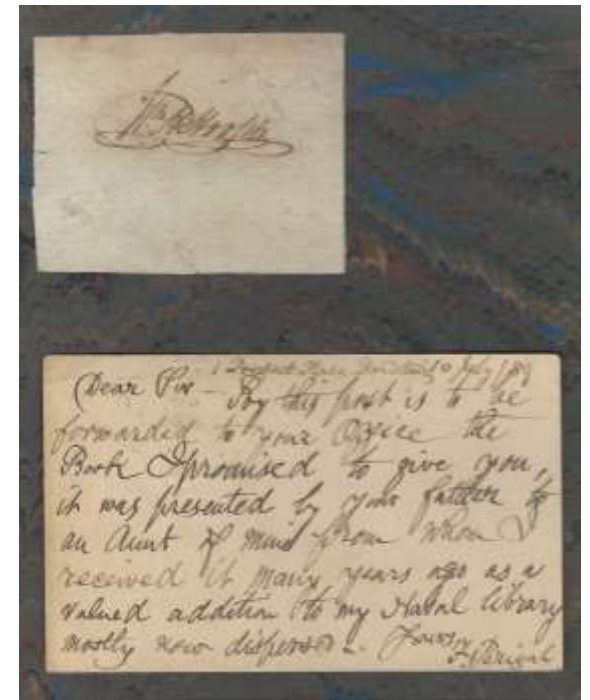 Dear Sir - By this post is to be
forwarded to your Office the
Book I promised to give you,
it was presented by your father to
an Aunt of mine from whom I
received it many years ago as a
valued addition to my Naval library
mostly now dispersed. Yours